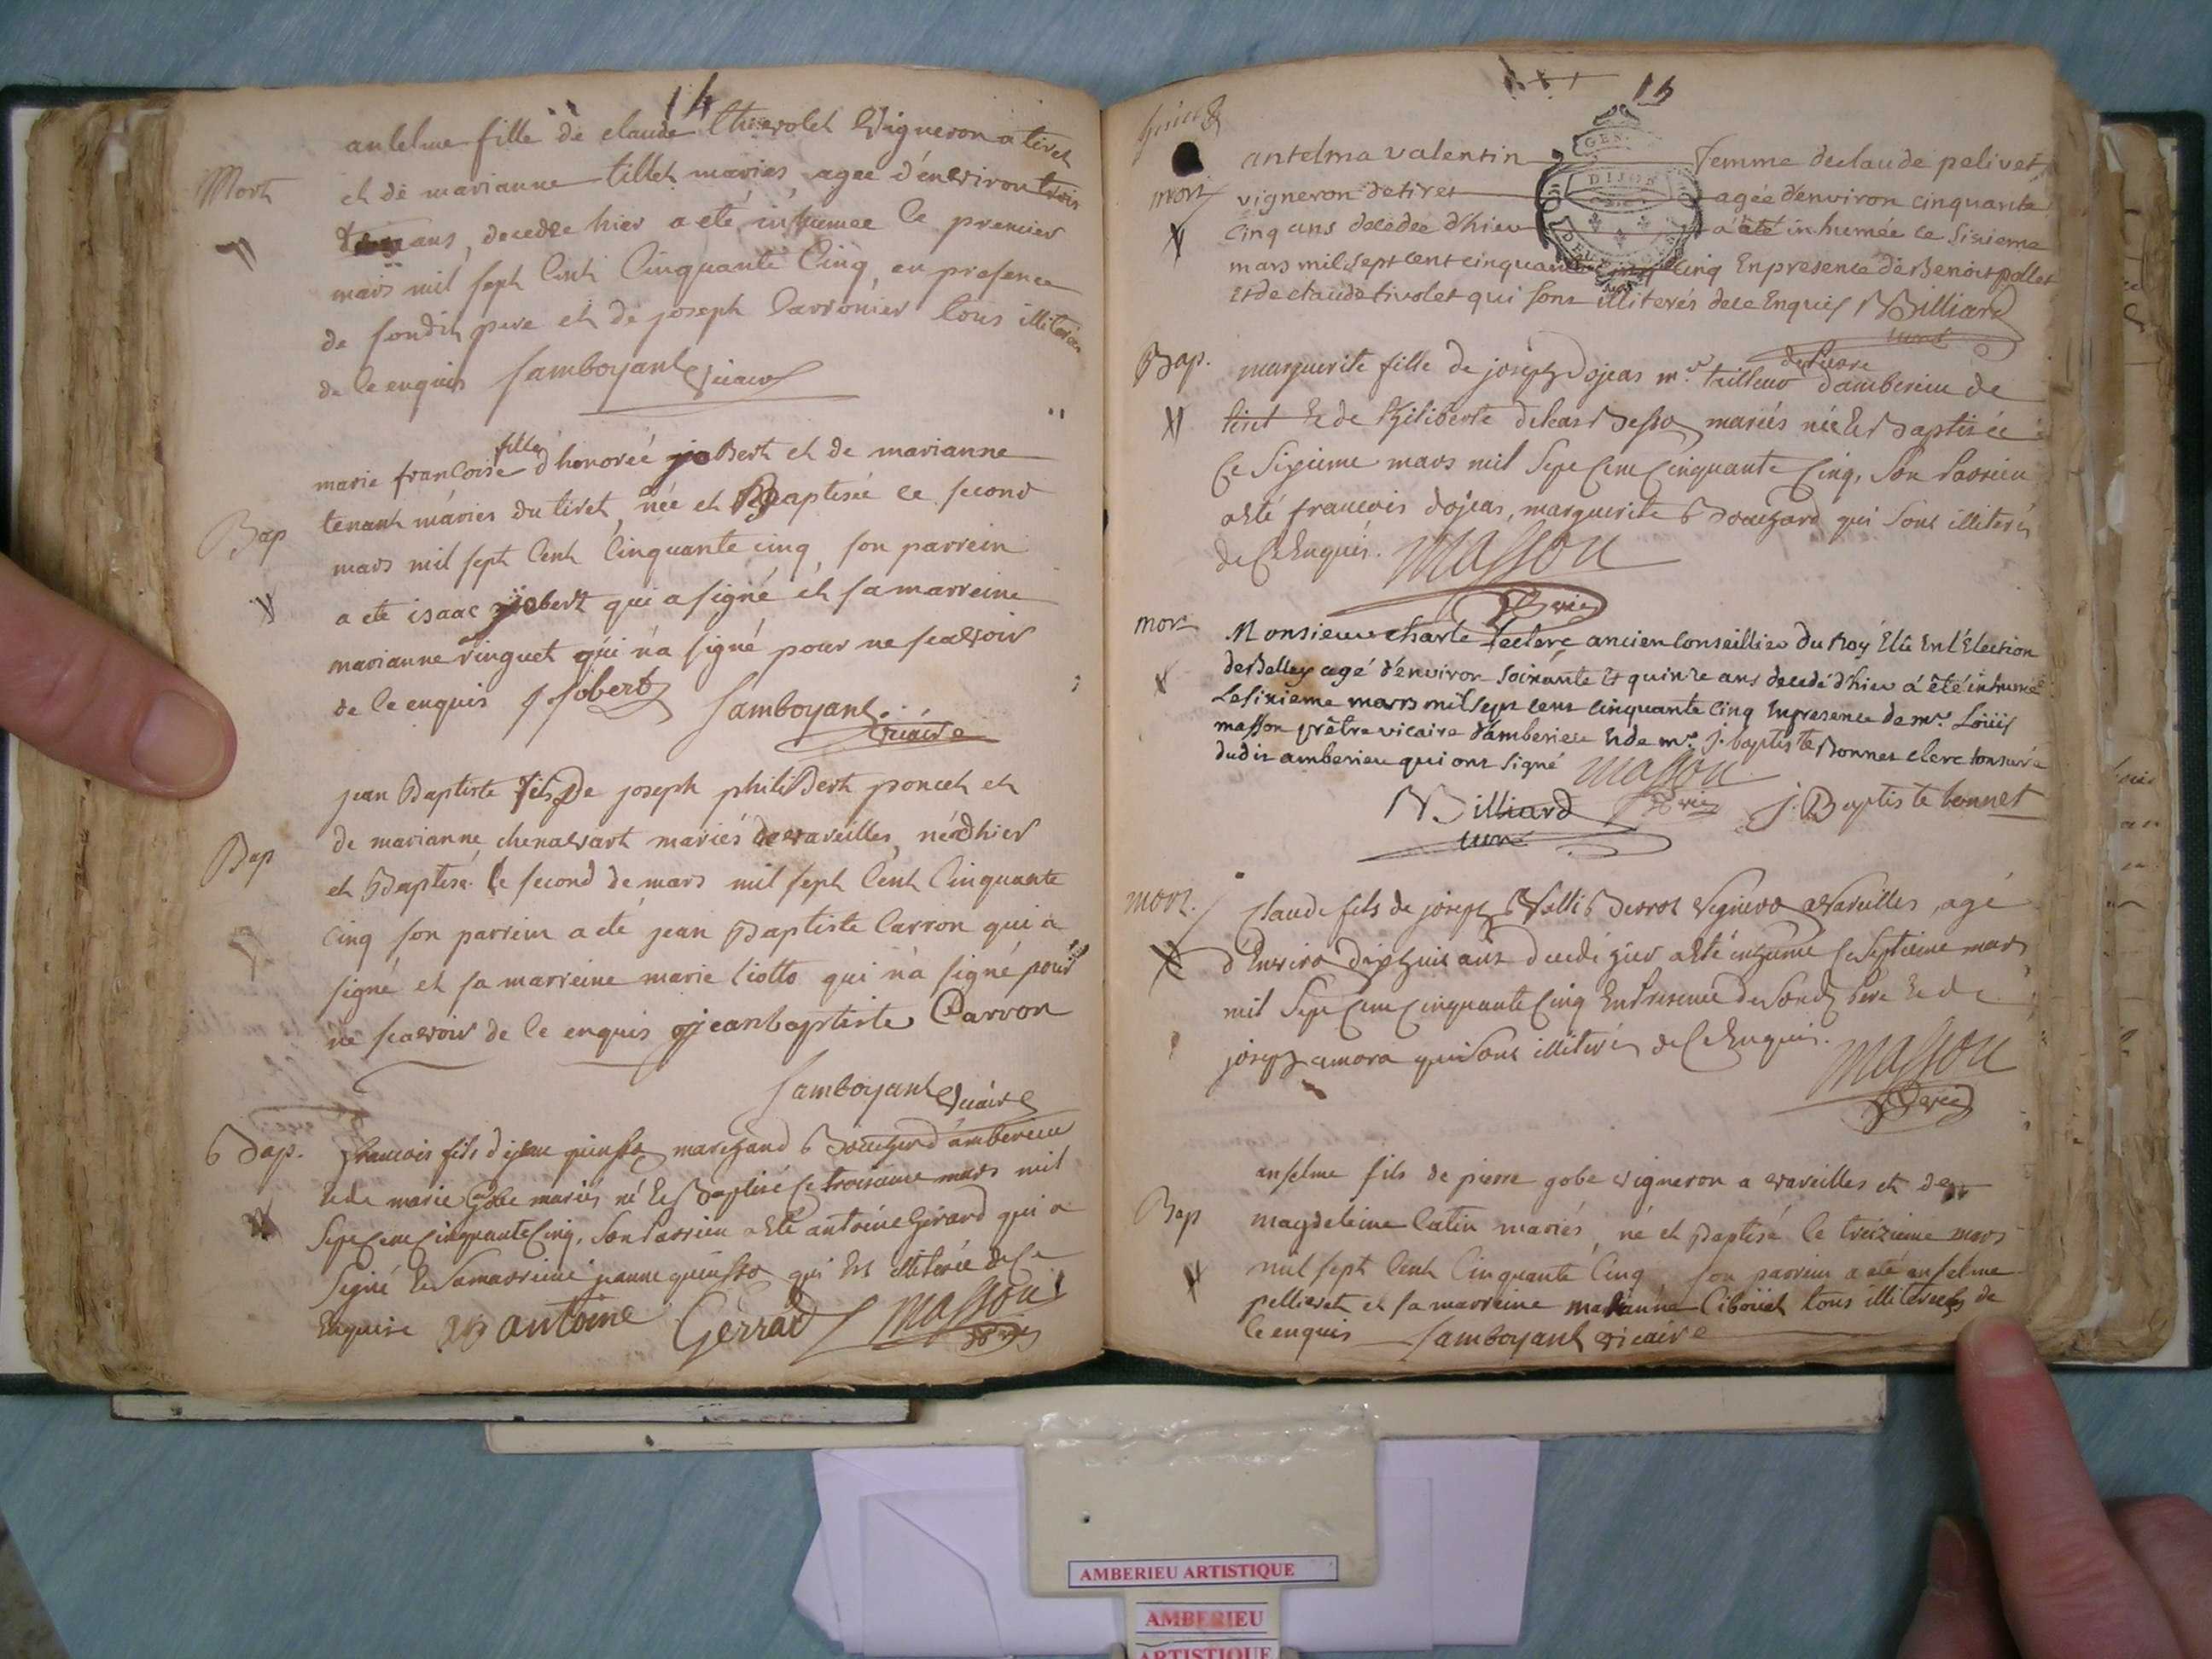 14
antelme fille de claude thievolet Vigneron a tiret
Mort
et de marianne tillet mariés agee d'environ trois
ans, decedee hier a eté inhumee le premier
mars mil sept Cent Cinquante Cinq en presence
de sondit pere et de joseph Carronier tous illiterés
de ce enquis Jamboyant vicaire
marie francoise fille d'honoreé jobert et de marianne
tenant mariés du tiret, née et Baptisée le second
Bap
mars mil sept Cent Cinquante cinq, son parrein
a eté isaac jobert qui a signé et sa marreine
marianne ringuet qui n'a signé pour ne scavoir
de ce enquis J Jobert Jamboyant
vicaire
jean Baptiste fils De joseph philiBert poncet et
de marianne chenavart mariés de vareilles, né d'hier
Bap
et Baptisé le second de mars mil sept Cent Cinquante
cinq son parrein a eté jean Baptiste Carron qui a
signé et sa marreine marie Ciotto qui n'a signé pour
ne scavoir de ce enquis jean baptiste Carron
Jamboyant vicaire
Bap. francois fils de jean marchand Boucher d'amberieu
et de marie Gobe mariés né et Baptisé ce troisieme mars mil
Sept Cent Cinquante Cinq, Son Parrein a Eté antoine Girard qui a
Signé et Sa marreine jeanne qui Est illiterée de ce
Enquise antoine Gerrard Masson
vic
15
antelma valentin femme de claude pelivet
mort
vigneron de tiret agée d'environ cinquante
cinq ans decedée d'hier a été inhumée le sixieme
mars mil sept cent cinquante cinq En presence de Benoit pollet
et de claude tivolet qui sont illiterés de ce Enquis Billiard
curé
GEN.
DIJON
Bap. marguerite fille de joseph Dojeas mr tailleur d'amberieu de
tiret et de Philiberte mariés née et Baptisée
Ce Sixieme mars mil Sept Cent Cinquante Cinq, Son Parrein
a Eté francois dojeas, marguerite Bouchard qui Sont illiterés
de Ce Enquis. Masson
vic
mort
Monsieur charle leclerc ancien Conseillier du Roy Elû En l'Election
de Belley agé d'environ soixante et quinze ans decedé d'hier a été inhumé
Le sixieme mars mil sept cent cinquante cinq En presence de mr. Loüis
masson prêtre vicaire d'amberieu et de mr. j. baptiste Bonnet clerc tonsuré
dudit amberieu qui ont signé Masson
Billiard vic j. Baptiste bonnet
curé
mort.
Claude fils de joseph Vigneron a Vareilles, agé
d'Environ dixhuit ans decedé hier a Eté inhumé Ce Septieme mars
mil Sept Cent Cinquante Cinq En Presence de Sondit Pere et de
joseph amora qui Sont illiterés de Ce Enquis. Masson
vic
anselme fils de pierre gobe vigneron a vareilles et de
Bap
magdeleine Catin mariés, né et Baptisé le treizieme mars
mil sept Cent Cinquante Cinq, son parrein a eté anselme
pellievet et sa marreine marianne Ciboüet tous illiterés de
Ce enquis Jamboyant vicaire
AMBERIEU ARTISTIQUE
AMBERIEU
ARTISTIQUE